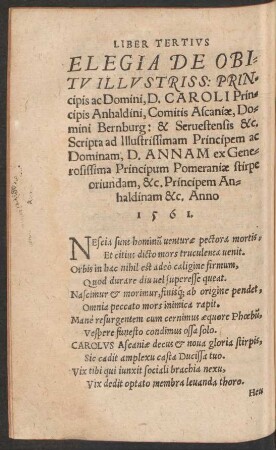 LIBER TERTIVS
ELEGIA DE OBI-
TV ILLVSTRISS: PRIN-
cipis ac Domini, D. CAROLI Prin-
cipis Anhaldini, Comitis Ascaniæ, Do-
mini Bernburg: & Seruestensis &c.
Scripta ad Illustrissimam Principem ac
Dominam, D. ANNAM ex Gene-
rosissima Principum Pomeraniæ stirpe
oriundam, &c. Principem An-
haldinam &c. Anno
1561.
NEscia sunt hominū venturæ pectora mortis,
Et citius dicto mors truculenta uenit.
Orbis in hac nihil est adeò caligine firmum,
Quod durare diu uel superesse queat.
Nascimur & morimur, finisq́; ab origine pendet,
Omnia peccato mors inimica rapit.
Manè resurgentem cum cernimus æquore Phœbū,
Vespere funesto condimus ossa solo.
CAROLVS Ascaniæ decus & noua gloria stirpis,
Sic cadit amplexu casta Ducissa tuo.
Vix tibi qui iunxit sociali brachia nexu,
Vix dedit optato membra leuanda thoro.
Heu